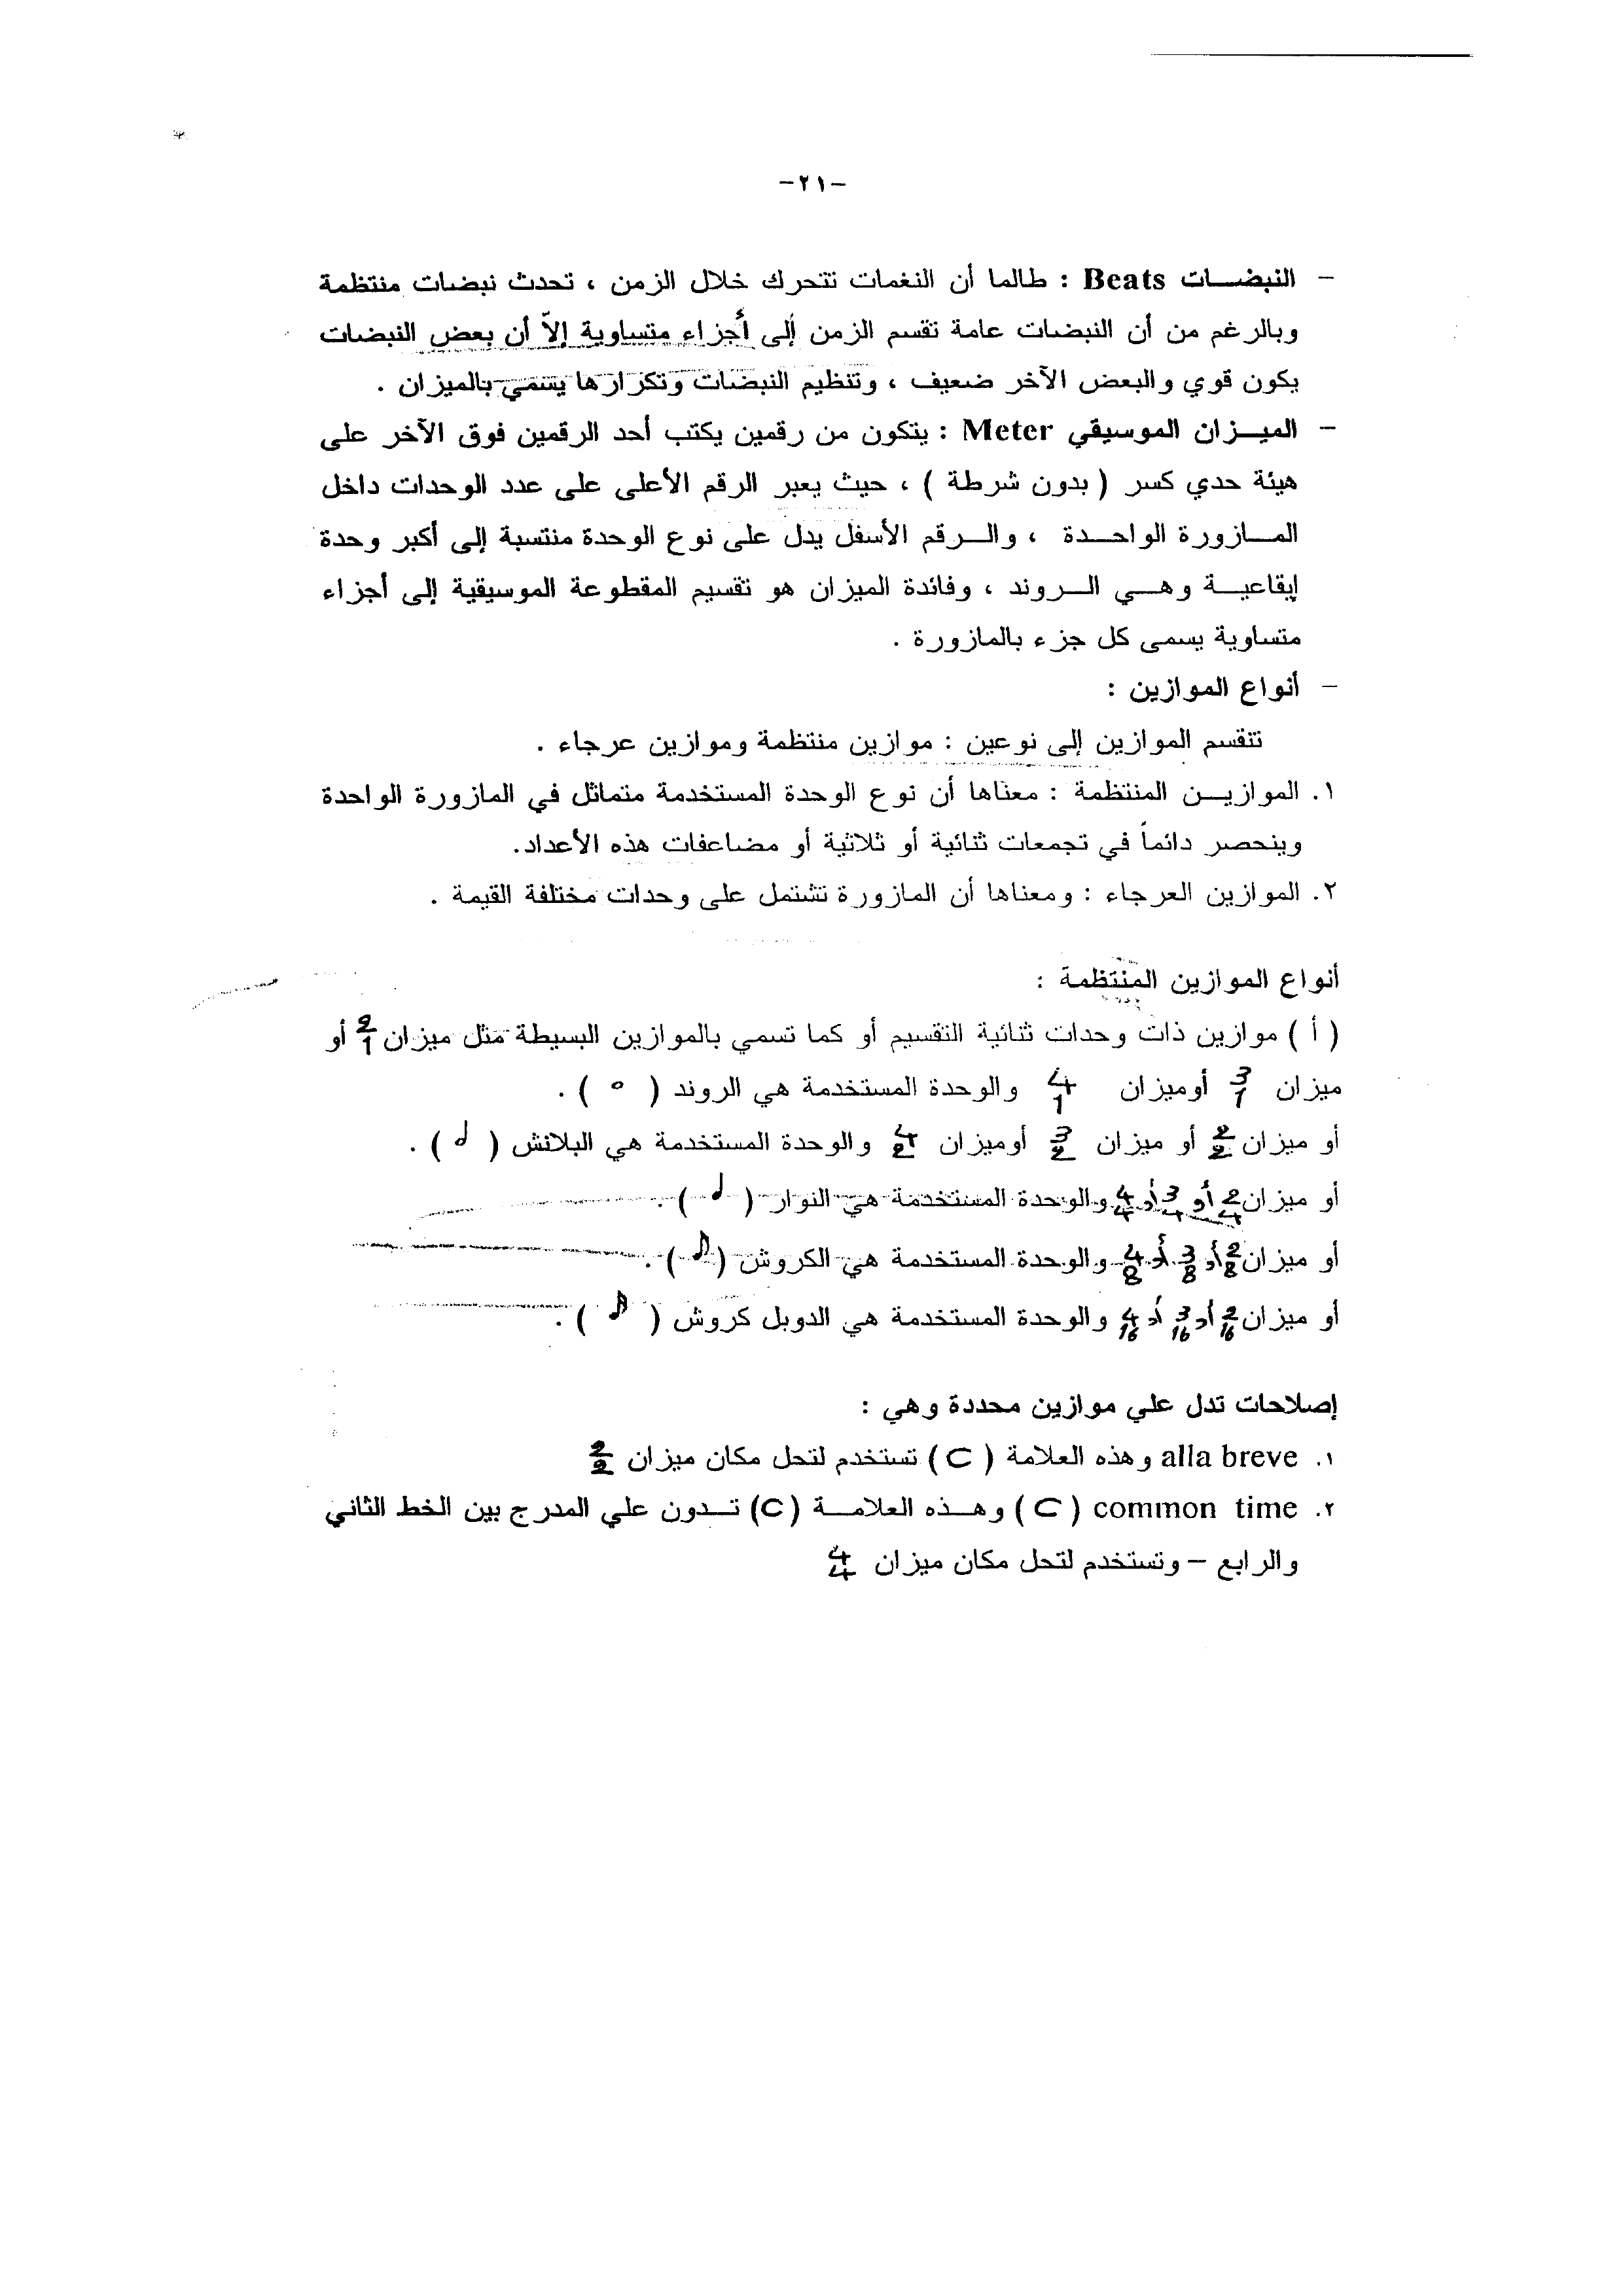 -٢١-
- النبضـــات Beats : طالما أن النغمات تتحرك خلال الزمن ، تحدث نبضات منتظمة
وبالرغم من أن النبضات عامة تقسم الزمن إلى أجزاء متساوية إلاّ أن بعض النبضات
يكون قوي والبعض الآخر ضعيف ، وتنظيم النبضات وتكرارها يسمي بالميزان .
- الميـــزان الموسيقي Meter : يتكون من رقمين يكتب أحد الرقمين فوق الآخر على
هيئة حدي كسر ( بدون شرطة ) ، حيث يعبر الرقم الأعلى على عدد الوحدات داخل
المـــازورة الواحـــدة ، والـــرقم الأسفل يدل على نوع الوحدة منتسبة إلى أكبر وحدة
إيقاعيـــة وهـــي الـــروند ، وفائدة الميزان هو تقسيم المقطوعة الموسيقية إلى أجزاء
متساوية يسمى كل جزء بالمازورة .
- أنواع الموازين :
تتقسم الموازين إلى نوعين : موازين منتظمة وموازين عرجاء .
١. الموازيـــن المنتظمة : معناها أن نوع الوحدة المستخدمة متماثل في المازورة الواحدة
وينحصر دائماً في تجمعات ثنائية أو ثلاثية أو مضاعفات هذه الأعداد.
٢. الموازين العرجاء : ومعناها أن المازورة تشتمل على وحدات مختلفة القيمة .
أنواع الموازين المنتظمة :
( أ ) موازين ذات وحدات ثنائية التقسيم أو كما تسمي بالموازين البسيطة مثل ميزان 2/1 أو
ميزان 3/1 أوميزان 4/1 والوحدة المستخدمة هي الروند ( 𝅝 ) .
أو ميزان 2/2 أو ميزان 3/2 أوميزان 4/2 والوحدة المستخدمة هي البلانش ( 𝅗𝅥 ) .
أو ميزان 2/4 أو 3/4 أو 4/4 والوحدة المستخدمة هي النوار ( ♩ ) .
أو ميزان 2/8 أو 3/8 أو 4/8 والوحدة المستخدمة هي الكروش ( ♪ ) .
أو ميزان 2/16 أو 3/16 أو 4/16 والوحدة المستخدمة هي الدوبل كروش ( 𝅘𝅥𝅯 ) .
إصلاحات تدل علي موازين محددة وهي :
١. alla breve وهذه العلامة ( C ) تستخدم لتحل مكان ميزان 2/2
٢. common time ( C ) وهـــذه العلامـــة (C) تـــدون علي المدرج بين الخط الثاني
والرابع – وتستخدم لتحل مكان ميزان 4/4